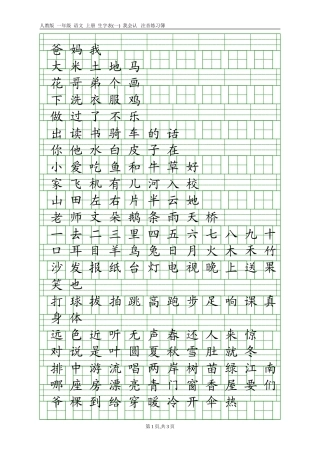 人教版 一年级 语文 上册 生字表(一) 我会认 注音练习簿
爸妈我
大米土地马
花哥弟个画
下洗衣魔布
做过了不乐
出读书骑车的话
你他水白皮子在
小爱吃鱼和牛草好
家飞机有儿河入校
山田左右片半云她
老师文朵鹅条雨天桥
一去二三里四五六七八九十
口耳目羊鸟兔日月火木禾竹
沙发报纸台灯电视晚上送给
笑也
打球拔拍跳高跑步足响课真
身体
远色近听无声春还人来惊
对说是叶圆夏秋雪肚就冬
排中游流唱两胡岸树苗绿南
哪座房漂亮青门窗香屋要们
爷棵到给穿暖冷开伞热
第1页,共3页